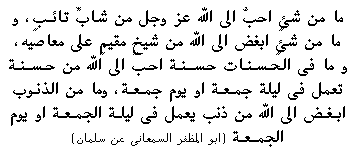 ما من شئٍ احبُّ الى الله عز وجل من شابٍّ تائبٍ، و
ما من شئٍ ابغض الى الله من شيخٍ مقيمٍ على معاصيه،
و ما فى الحسنات حسنة احبَّ الى الله من حسنة
تعمل فى ليلة جمعة او يوم جمعة، وما من الذنوب
ابغض الى الله من ذنب يعمل فى ليلة الجمعة او يوم
الجمعة (ابو المظفر السمعانى عن سلمان)